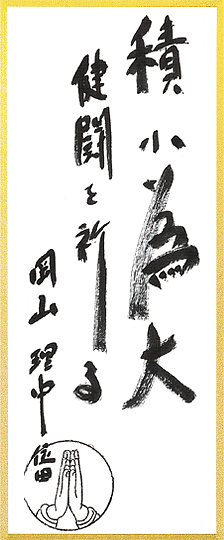 積小為大
健闘を祈る
岡山理中